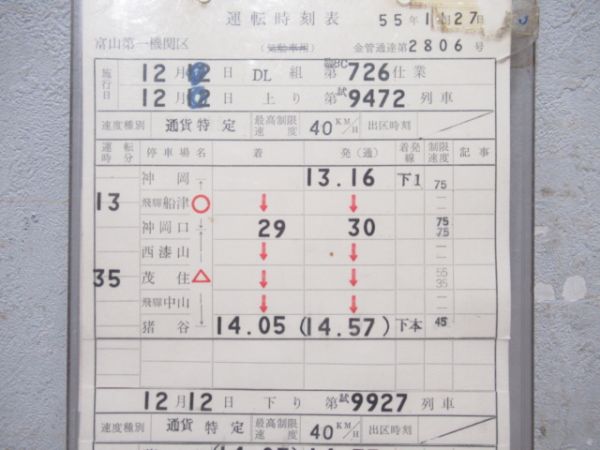 運転時刻表 55年1月27日
富山第一機関区 金管通達第2806号
施行日 12月12日 DL組 第726仕業
12月12日 上り 第試9472列車
速度種別 通貨特定 最高制限速度 40KM/H 出区時刻
運転時分 停車場名 着 発(通) 着発線 制限速度 記事
神岡 13.16 下1 75
13 飛驒船津 ○ ↓ ↓
神岡口 29 30 75 75
西漆山 ↓ ↓
35 茂住 △ ↓ ↓ 55 35
飛驒中山 ↓ ↓
猪谷 14.05 (14.57) 下本 45
12月12日 下り 第試9927列車
速度種別 通貨特定 最高制限速度 40KM/H 出区時刻